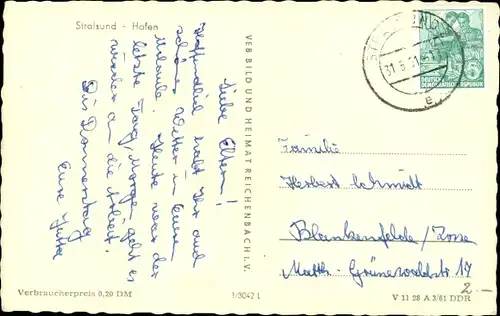 Stralsund - Hafen
Liebe Eltern!
Hoffentlich habt Ihr auch
schönes Wetter in Eurem
Urlaub. Heute war der
letzte Tag, Morgen geht es
wieder an die Arbeit.
Bis Donnerstag
Eure Jutta
Verbraucherpreis 0,20 DM
VEB BILD UND HEIMAT REICHENBACH I. V.
1/3042 L
31.5.61
e
DEUTSCHE
DEMOKRATISCHE REPUBLIK
Familie
Herbert Schmidt
Blankenfelde/Zosse
Matth.-Grünewaldstr. 17
2.-
V 11 28 A 3/61 DDR